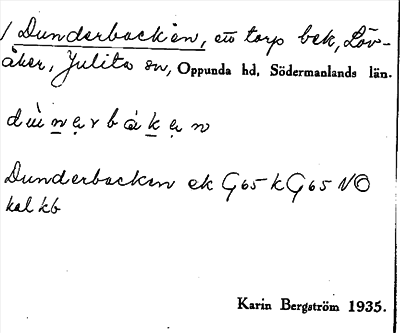 / Dunderbacken, ett torp bek, Löv-
åker, Julita sn, Oppunda hd, Södermanlands län.
dùnẹrbákẹn
Dunderbacken ek G65 k G65 NO
kal kb
Karin Bergström 1935.